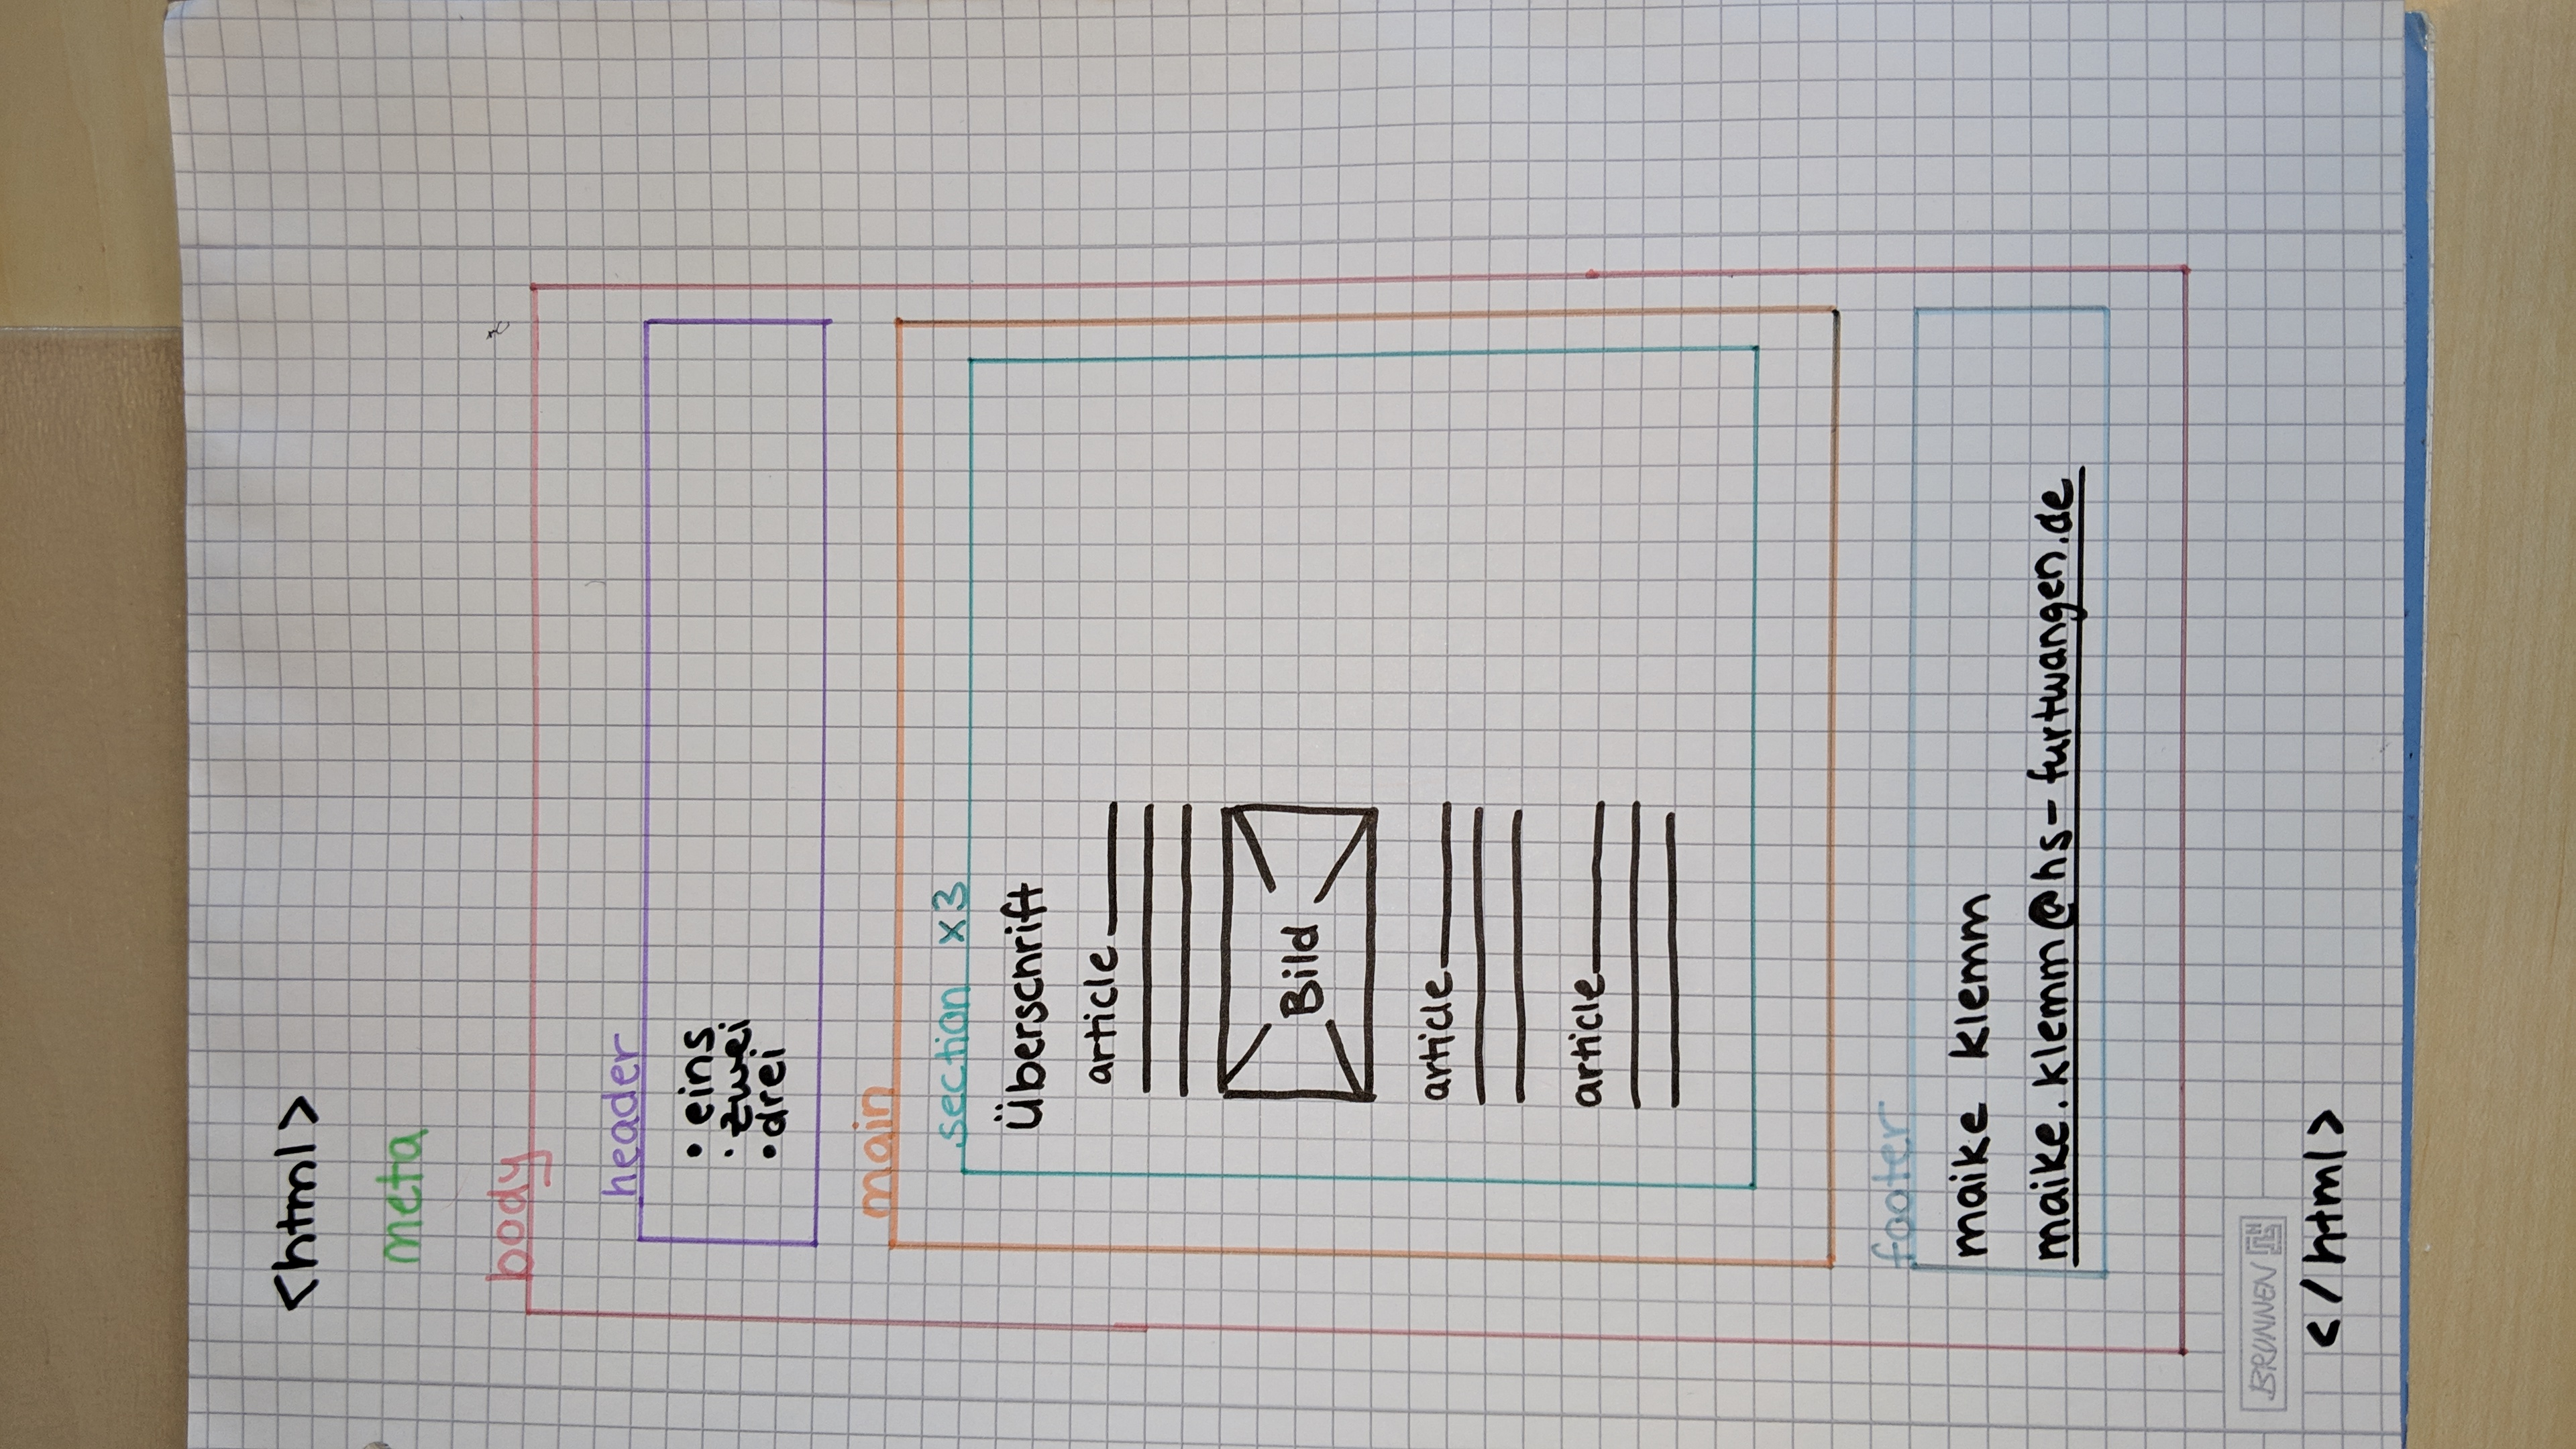 <html>
meta
body
header
• eins
• zwei
• drei
main
section x3
Überschrift
article
Bild
article
article
footer
maike klemm
maike.klemm@hs-furtwangen.de
BRUNNEN
</html>